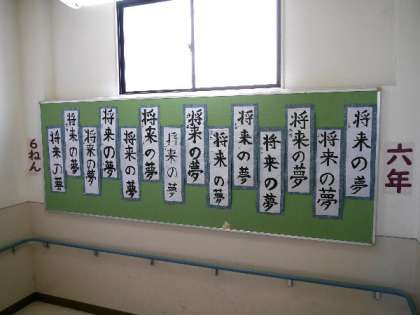 六年
将来の夢
将来の夢
将来の夢
将来の夢
将来の夢
将来の夢
将来の夢
将来の夢
将来の夢
将来の夢
将来の夢
将来の夢
将来の夢
将来の夢
6ねん